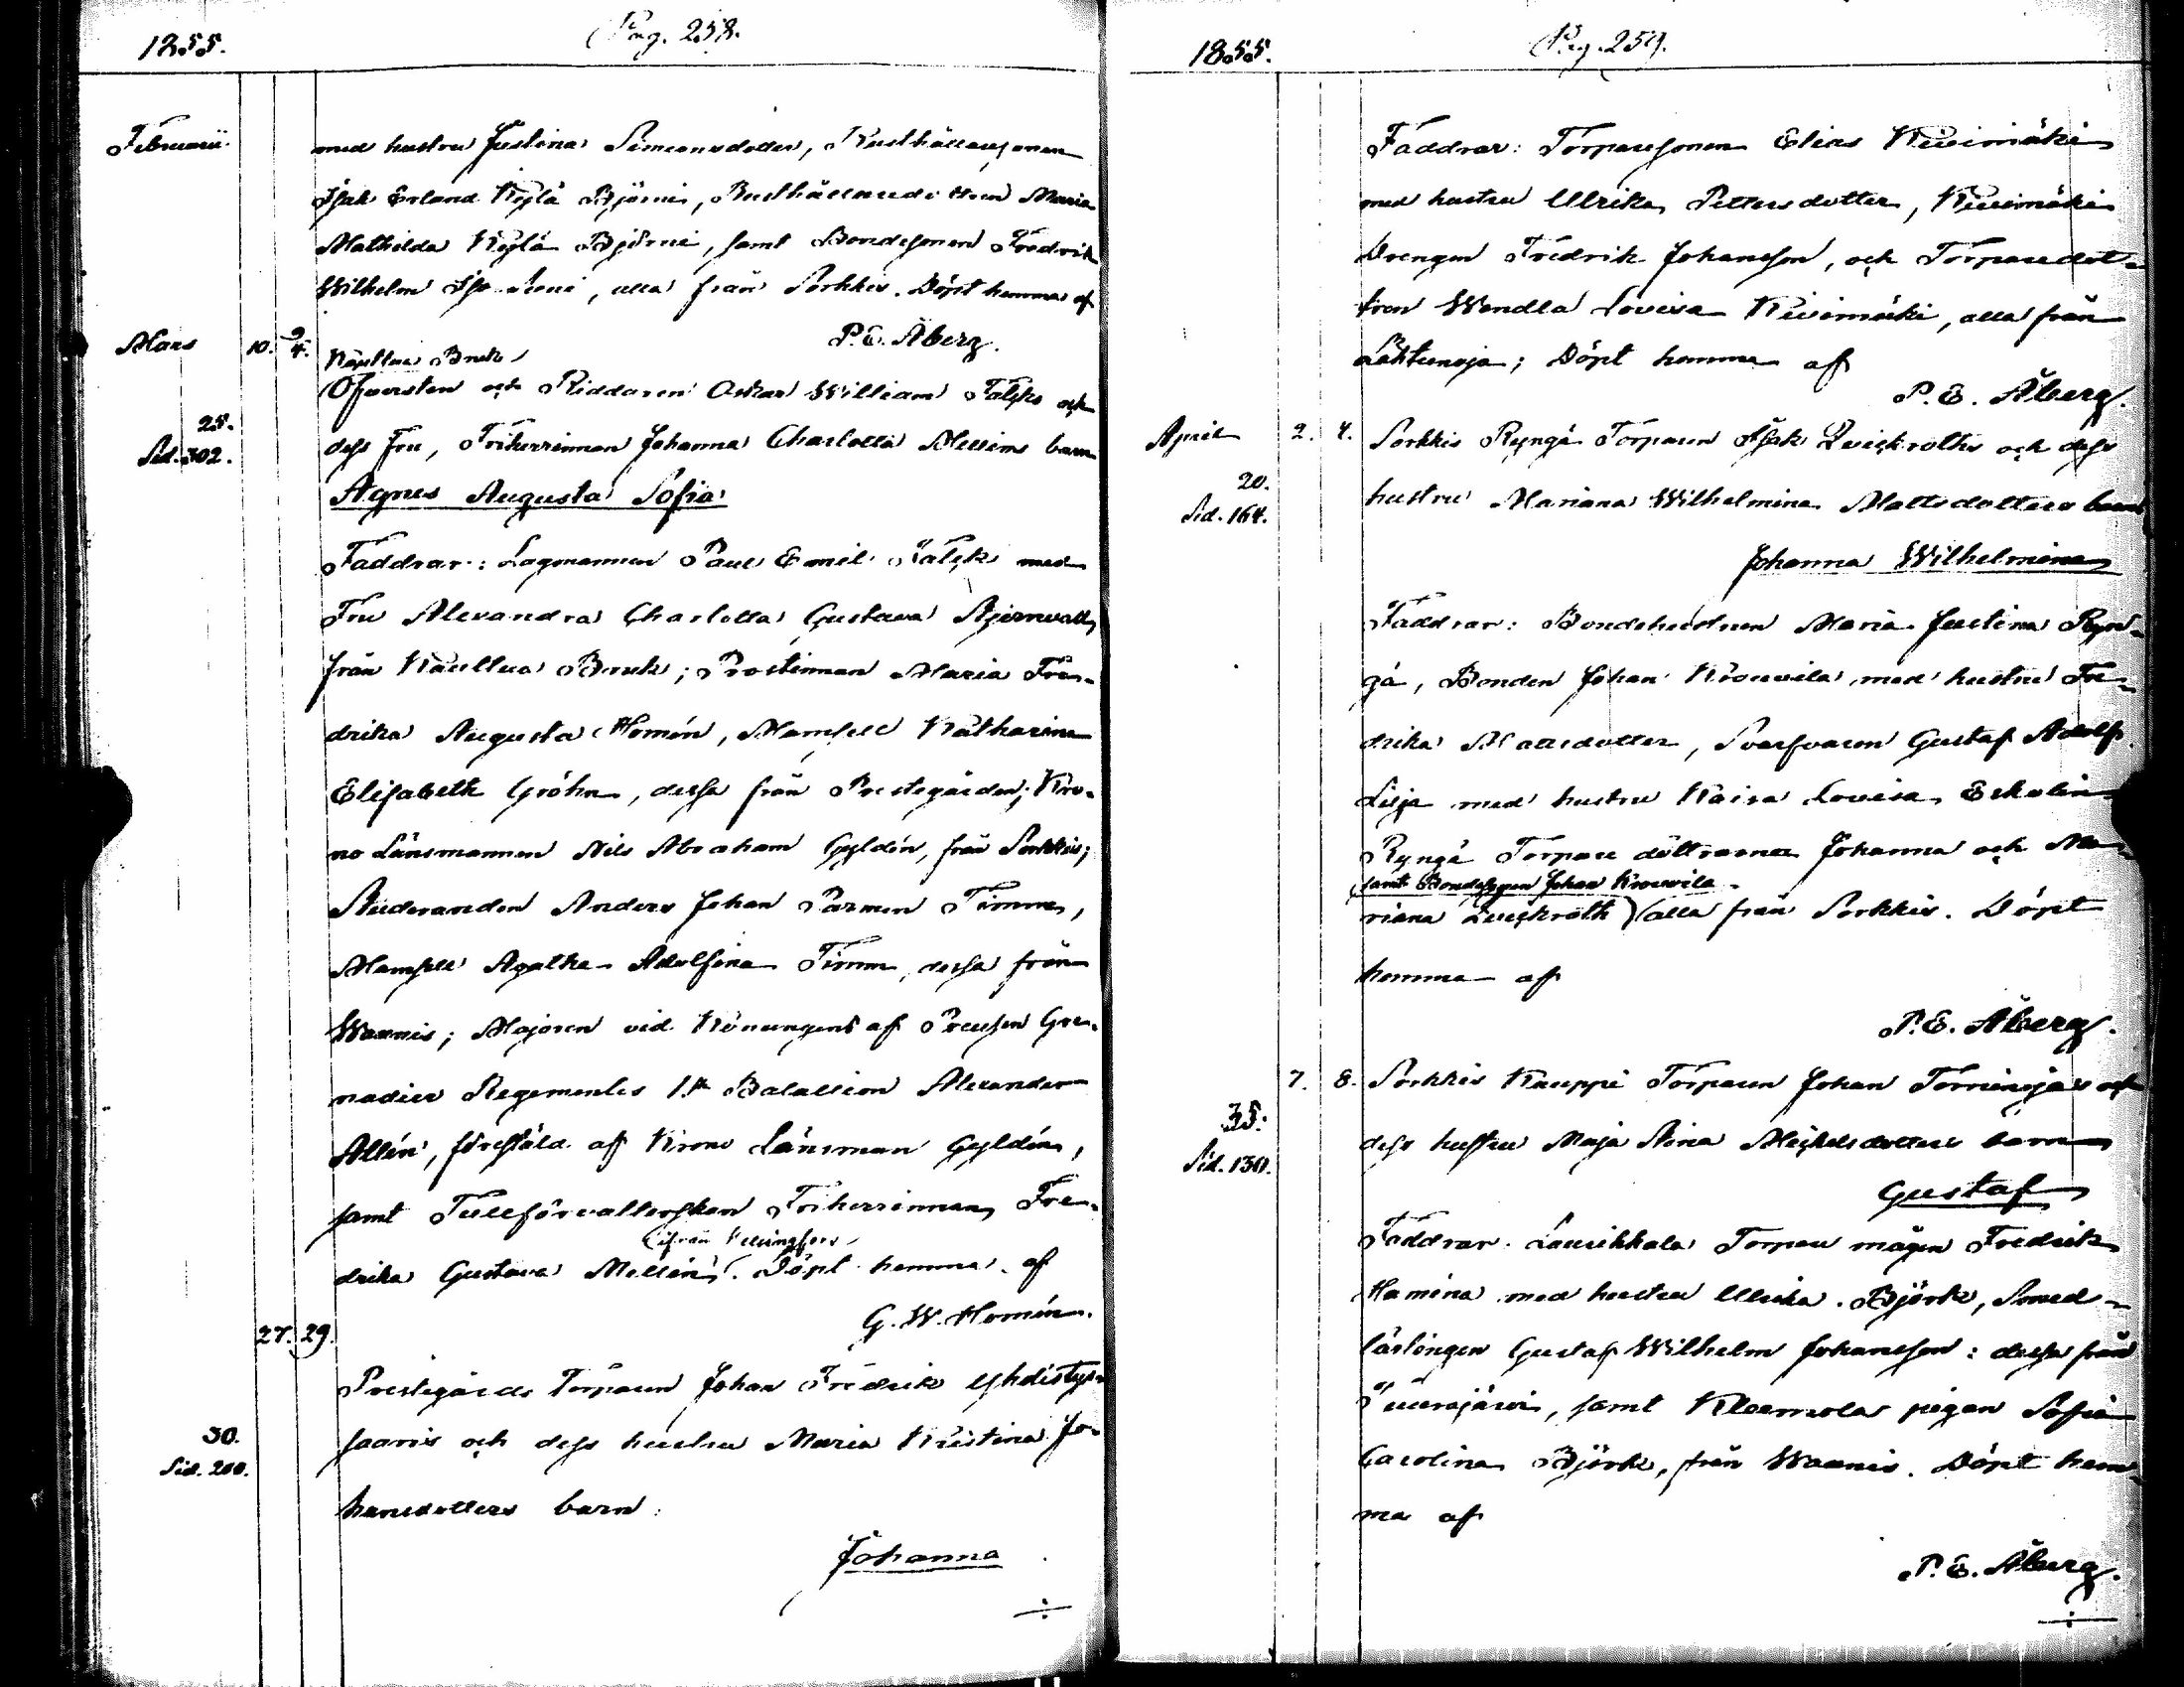 1855.
Pag. 258.
Februarii.
med hustru Justina Simeonsdotter, Rusthållaresonen
Isak Erland Kylä Björni, Rusthållaredottren Maria
Mathilda Kylä Björni, samt Bondesonen Fredrik
Wilhelm, alla från Sorkkis. Döpt hemma af
P. E. Åberg.
Mars 10. 4.
Kauttua Bruk
Öfversten och Riddaren Oskar William Falcks och
25.
dess Fru, Friherrinnan Johanna Charlotta Mellins barn
Sid. 302.
Agnes Augusta Sofia
Faddrar: Lagmannen Paul Emil Falck med
Fru Alexandra Charlotta Gustava Stjernvall,
från Kauttua Bruk; Prostinnan Maria Fre-
drika Augusta Homén, Mamsell Katharina
Elisabeth Gröhn, dessa från Prestegården; Kro-
no Länsmannen Nils Abraham Gyldén, från Sorkkis;
Studeranden Anders Johan Parmen Timm,
Mamsell Agatha Adolfina Timm, dessa från
Waanis; Majoren vid Konungens af Preusen Gre-
nadier Regementes 1.sta Bataillion Alexander
Allén, förestäld af Krono Länsman Gyldén,
samt Tullförvalterskan Friherrinnan Fre-
(ifrån Helsingfors
drika Gustava Mellin. Döpt hemma af
G. W. Homén.
27. 29.
Prestegårds Torparen Johan Fredrik Yhdistys-
30.
saaris och dess hustru Maria Kristina Jo-
Sid. 200.
hansdotters barn:
Johanna
÷
1855.
Pag. 259.
Faddrar: Torparesonen Elias Kivimäki
med hustru Ulrika Pettersdotter, Kivimäki
Drengen Fredrik Johansson, och Torparedot-
tren Wendla Lovisa Kivimäki, alla från
Lähteenoja; Döpt hemma af
P. E. Åberg.
April 2. 4. Sorkkis Ryngö Torparen Isak Qvickroths och dess
20.
hustru Mariana Wilhelmina Mattsdotters barn
Sid. 164.
Johanna Wilhelmina
Faddrar: Bondehustrun Maria Justina Ryn-
gö, Bonden Johan Krouvila med hustru Fre-
drika Mattsdotter, Svarfvaren Gustaf Adolf
Lilja med hustru Kaisa Lovisa Eskolin
Ryngö Torpare döttrarna Johanna och Ma-
samt Bondesonen Johan Krouvila
riana Qvickroth) (alla från Sorkkis. Döpt
hemma af
P. E. Åberg.
7. 8. Sorkkis Kauppi Torparen Johan Torniojas och
35.
dess hustru Maja Stina Michelsdotters barn
Sid. 130.
Gustaf
Faddrar. Laurikkala Torpare mågen Fredrik
Hamina med hustru Ulrika Björk, Smed-
lärlingen Gustaf Wilhelm Johansson: dessa från
Tuurajärvi, samt Kleemola pigan Sofia
Carolina Björk, från Waanis. Döpt hem-
ma af
P. E. Åberg.
÷